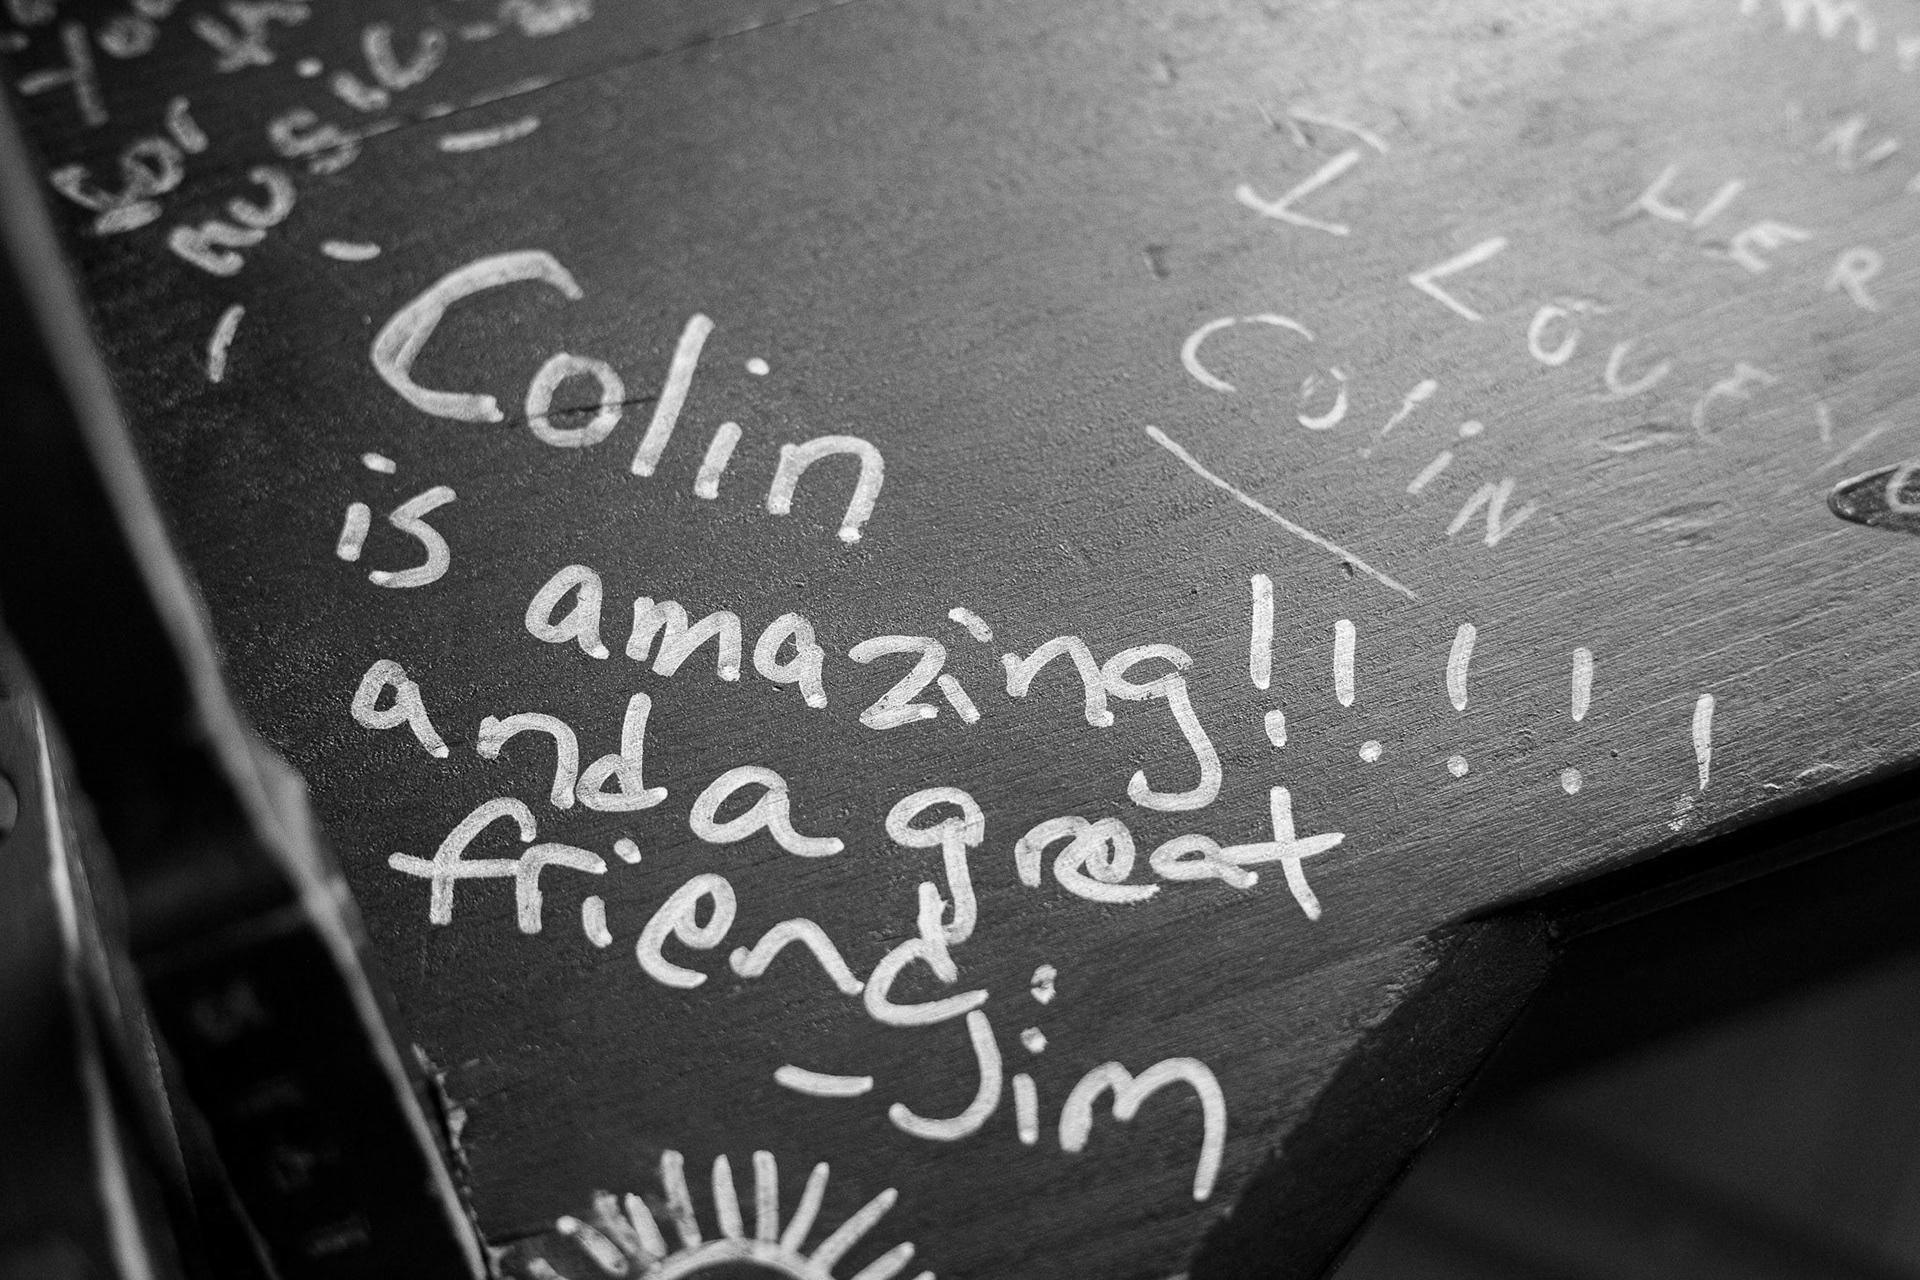 for
music
Colin
is amazing!!!!!
and a great
friend
-Jim
I
HER
Colin